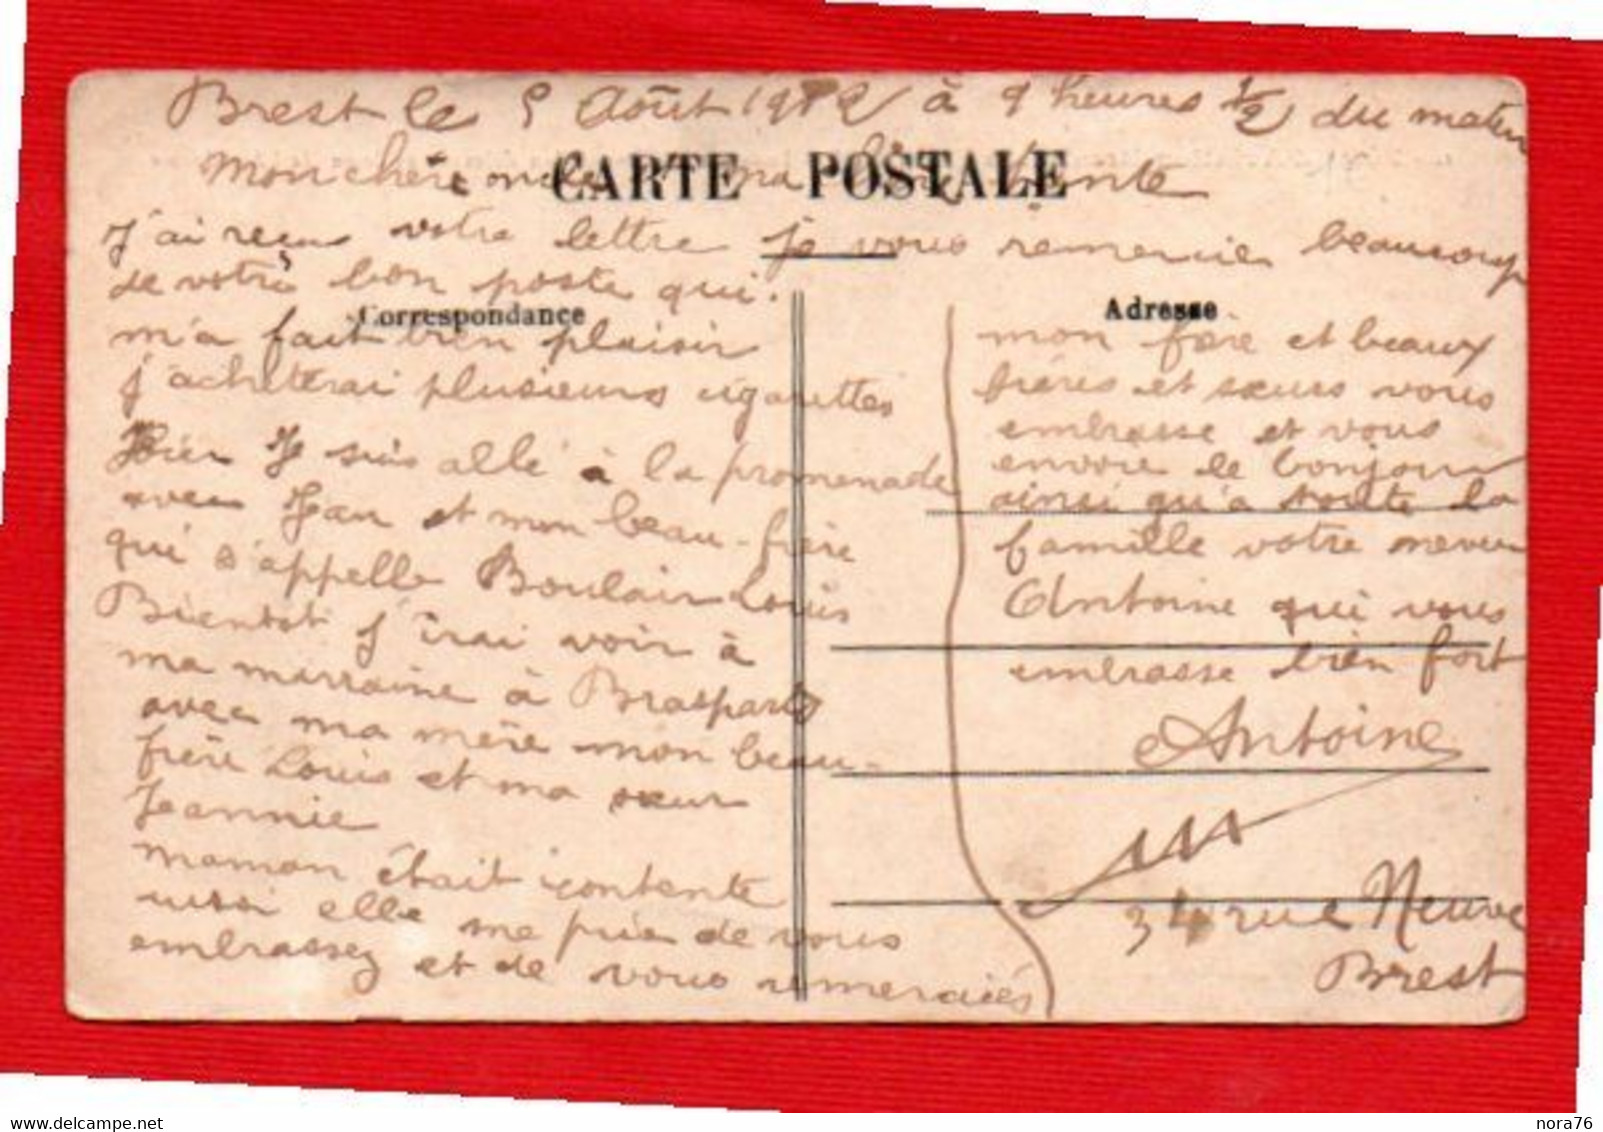 Brest le 5 Août 1912 à 9 heures 1/2 du matin
Mon chère oncle ma tante
CARTE POSTALE
J'ai reçus votre lettre je vous remercie beaucoup
de votre bon poste qui
Correspondance
m'a fait bien plaisir
j'achèterai plusieurs cigarettes
Hier Je suis allé à la promenade
avec Jean et mon beau-frère
qui s'appelle Boulair Louis
Bientot j'irai voir à
ma marraine à Brasparts
avec ma mère mon beau-
frère Louis et ma sœur
Jeannie
Maman était contente
aussi elle me prie de vous
embrassez et de vous remerciés
Adresse
mon frère et beaux
frères et sœurs vous
embrasse et vous
envoie le bonjour
ainsi qu'a toute la
famille votre neveu
Antoine qui vous
embrasse bien fort
Antoine
34 rue Neuve
Brest
delcampe.net
nora76